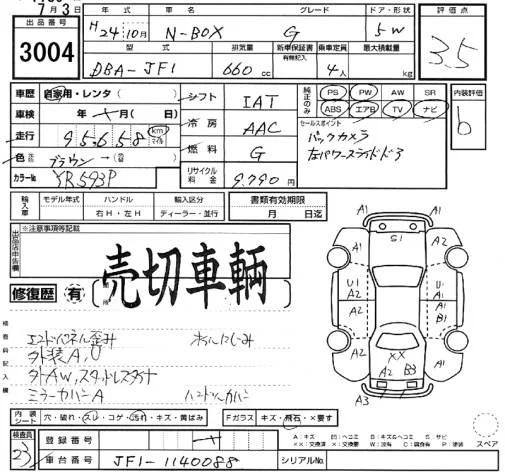 7月3日
出品番号
3004
年式 車名 グレード ドア・形状
H24年10月 N-BOX G 5W
型式 排気量 新車保証書 有無記入 乗車定員 最大積載量
DBA-JF1 660cc 4人 kg
評価点
3.5
車歴 自家用・レンタ( )
車検 年 月( 日)
走行 95,658 km マイル
色 ブラウン→( )
カラーNo YR593P
シフト IAT
冷房 AAC
燃料 G
リサイクル料金 9,790円
純正のみ PS PW AW SR
ABS エアB TV ナビ
内装評価
b
セールスポイント
バックカメラ
左パワースライドドア
輸入車 モデル年式 ハンドル 輸入区分
右H・左H ディーラー・並行
書類有効期限
月 日迄
出品店申告欄
※注意事項等記載
売切車輌
修復歴 有
検査員記入欄
エンドパネル歪み ホイルにじみ
外装A,U
外AW,スタットレスタイヤ
ミラーカバーA ハンドルカバー
A1
A1 S1 A1
A2 A2
U1 U1
A2 A1
B1
XX
A2 B3
A1 A2
A3 A1
内装シート 穴・破れ・スレ・コゲ・汚れ・キズ・黄ばみ
Fガラス キズ・飛石・×要す
検査員
23
登録番号
車台番号 JF1-1140088
シリアルNo.
A:キズ U:凹ヘコミ B:キズ&ヘコミ S:サビ
××:交換済 ×:要交換 W:波有 C:腐食有 P:塗装
スペア